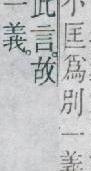 不匡爲別一義
此言。故
一義。